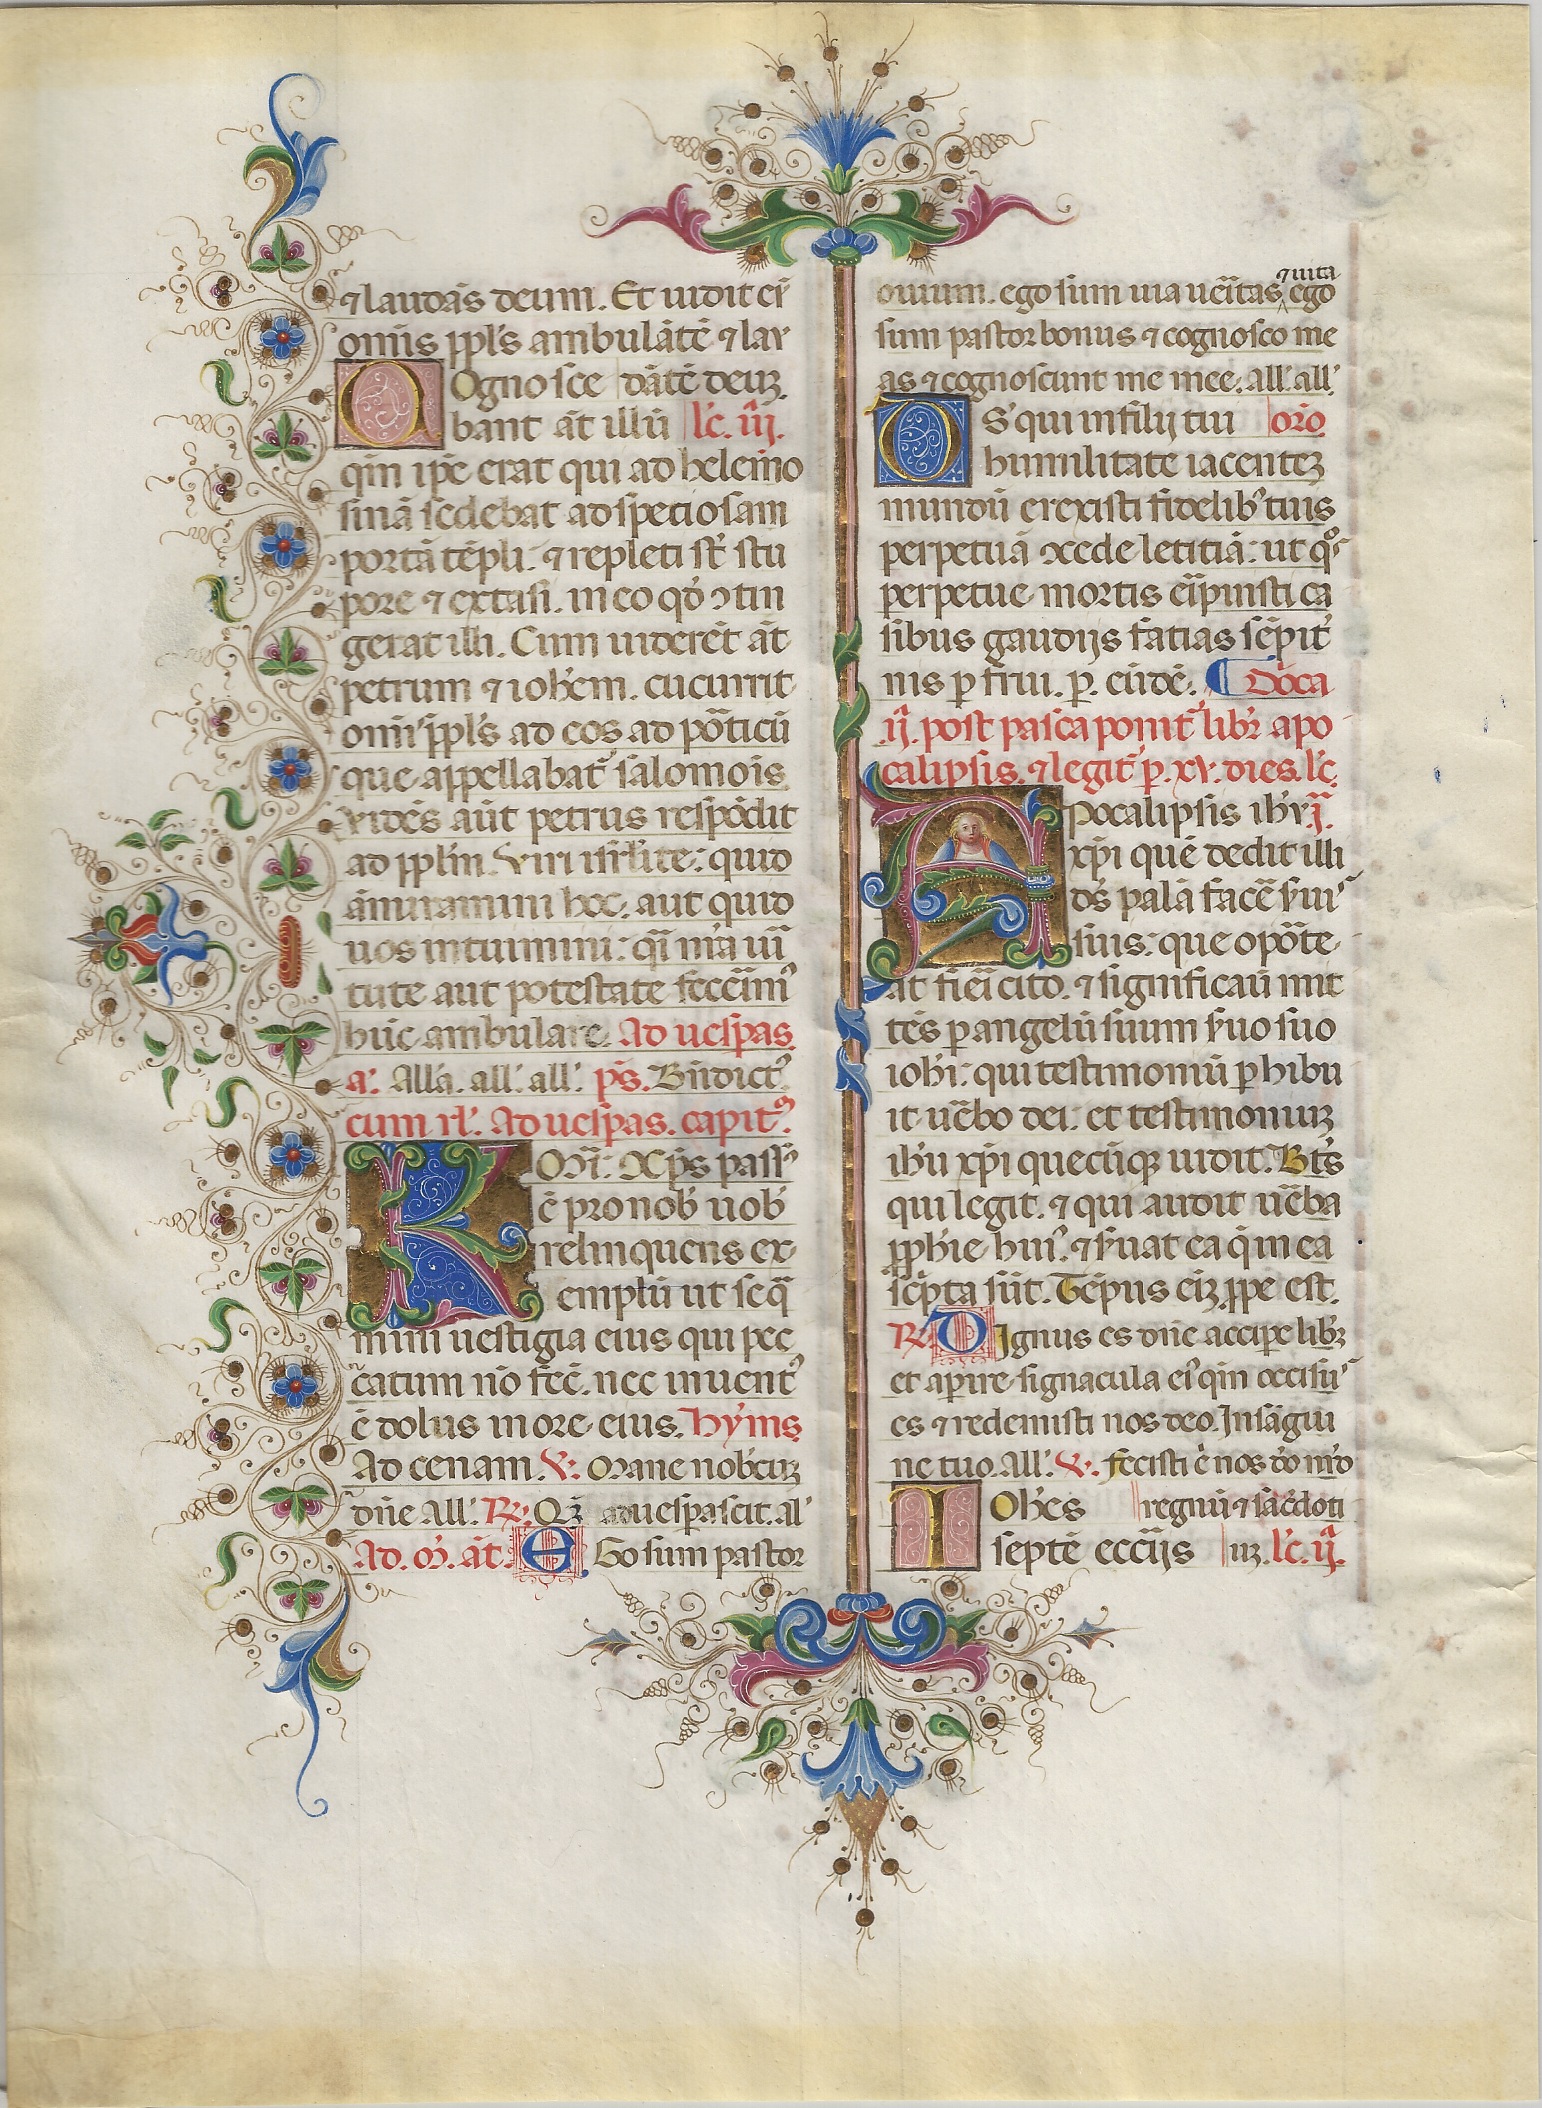 ⁊ laudās deum. Et uidit eū
omīs ppl's ambulātē ⁊ lau
Cognosce dātē deuȝ.
bant āt illū lc̄. iij.
qm̄ ip̄e erat qui ad helemo
sinā sedebat ad speciosam
portā tēpli. ⁊ repleti st̄ stu
pore ⁊ extasi. in eo qd̓ ↄtin
gerat illi. Cum uiderēt āt
petrum ⁊ ioh̄em. cucurrit
omīs ppl's ad eos ad pōticū
que appellabat̄ salomois.
Vidēs aūt petrus respōdit
ad ppl'm. Viri isrl'ite: quid
āmiramini hoc. aut quid
uos intuimini: q̄i nr̄a uir̄
tute aut potestate fecerim̓
hūc ambulare. Ad uesp̄as
a'. Alla. all'. all'. ps̄. Bn̄dict̓
cum rl'. Ad uesp̄as. capit̓.
Kmī. Xp̄s pass̓
ē pro nob' uob'
relinquens ex
emplū ut seq̄
mini uestigia eius qui pec
catum nō fec̄. nec inuent̓
ē dolus in ore eius. Hym̄s
Ad cenam. V. Mane nob̄cuȝ
dn̄e All'. R. Qm̄ aduesp̄ascit. al'
Ad. m̄. āt. Ego sum pastor
ouium. ego sum uia ueītas ⁊ uita ego
sum pastor bonus ⁊ cognosco me
as ⁊ cognoscunt me mee. all'. all'.
Ds̓ qui in filij tui orō
humilitate iacenteȝ
mundū erexisti fidelib' tuis
perpetuā ↄcede letitiā: ut q̊s
perpetue mortis eīpuisti ca
sibus gaudijs fatias sēpit̓
nis p̄ frui. p. eūdē. Dōca
ij. post pasca ponit̄ lib' apo
calipsis. ⁊ legit̄ p. xv. dies. lc̄.
Apocalipsis ih̄u j.
xp̄i quē dedit illi
ds̓ palā facē s̄uis
suis: que opōte
at fiēi cito. ⁊ significauī mit
tēs p̄ angelū suum s̄uo suo
ioh̄i: qui testimoniū p̄hibu
it uēbo dei. et testimoniuȝ
ih̄u xp̄i quecūq̄ uidit. Bt̄s
qui legit. ⁊ qui audit uēba
pph̄ie hui̓. ⁊ s̄uat ea q̄ in ea
sc̄pta sūt. Tēpus eīȝ ppe est.
R. Dignus es dn̄e accip̄e lib̄ȝ
et ap̄ire signacula ei̓ qm̄ occisus
es ⁊ redemisti nos deo. In sāgui
ne tuo. All'. V. fecisti ē nos dō nr̄o
Ioh̄es regnū ⁊ sac̄doti
septē eccīijs uȝ. lc̄. ij.